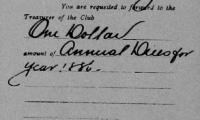 You are requested to forward to the
Treasurer of the Club
One Dollar
amount of Annual Dues for
year 1886.